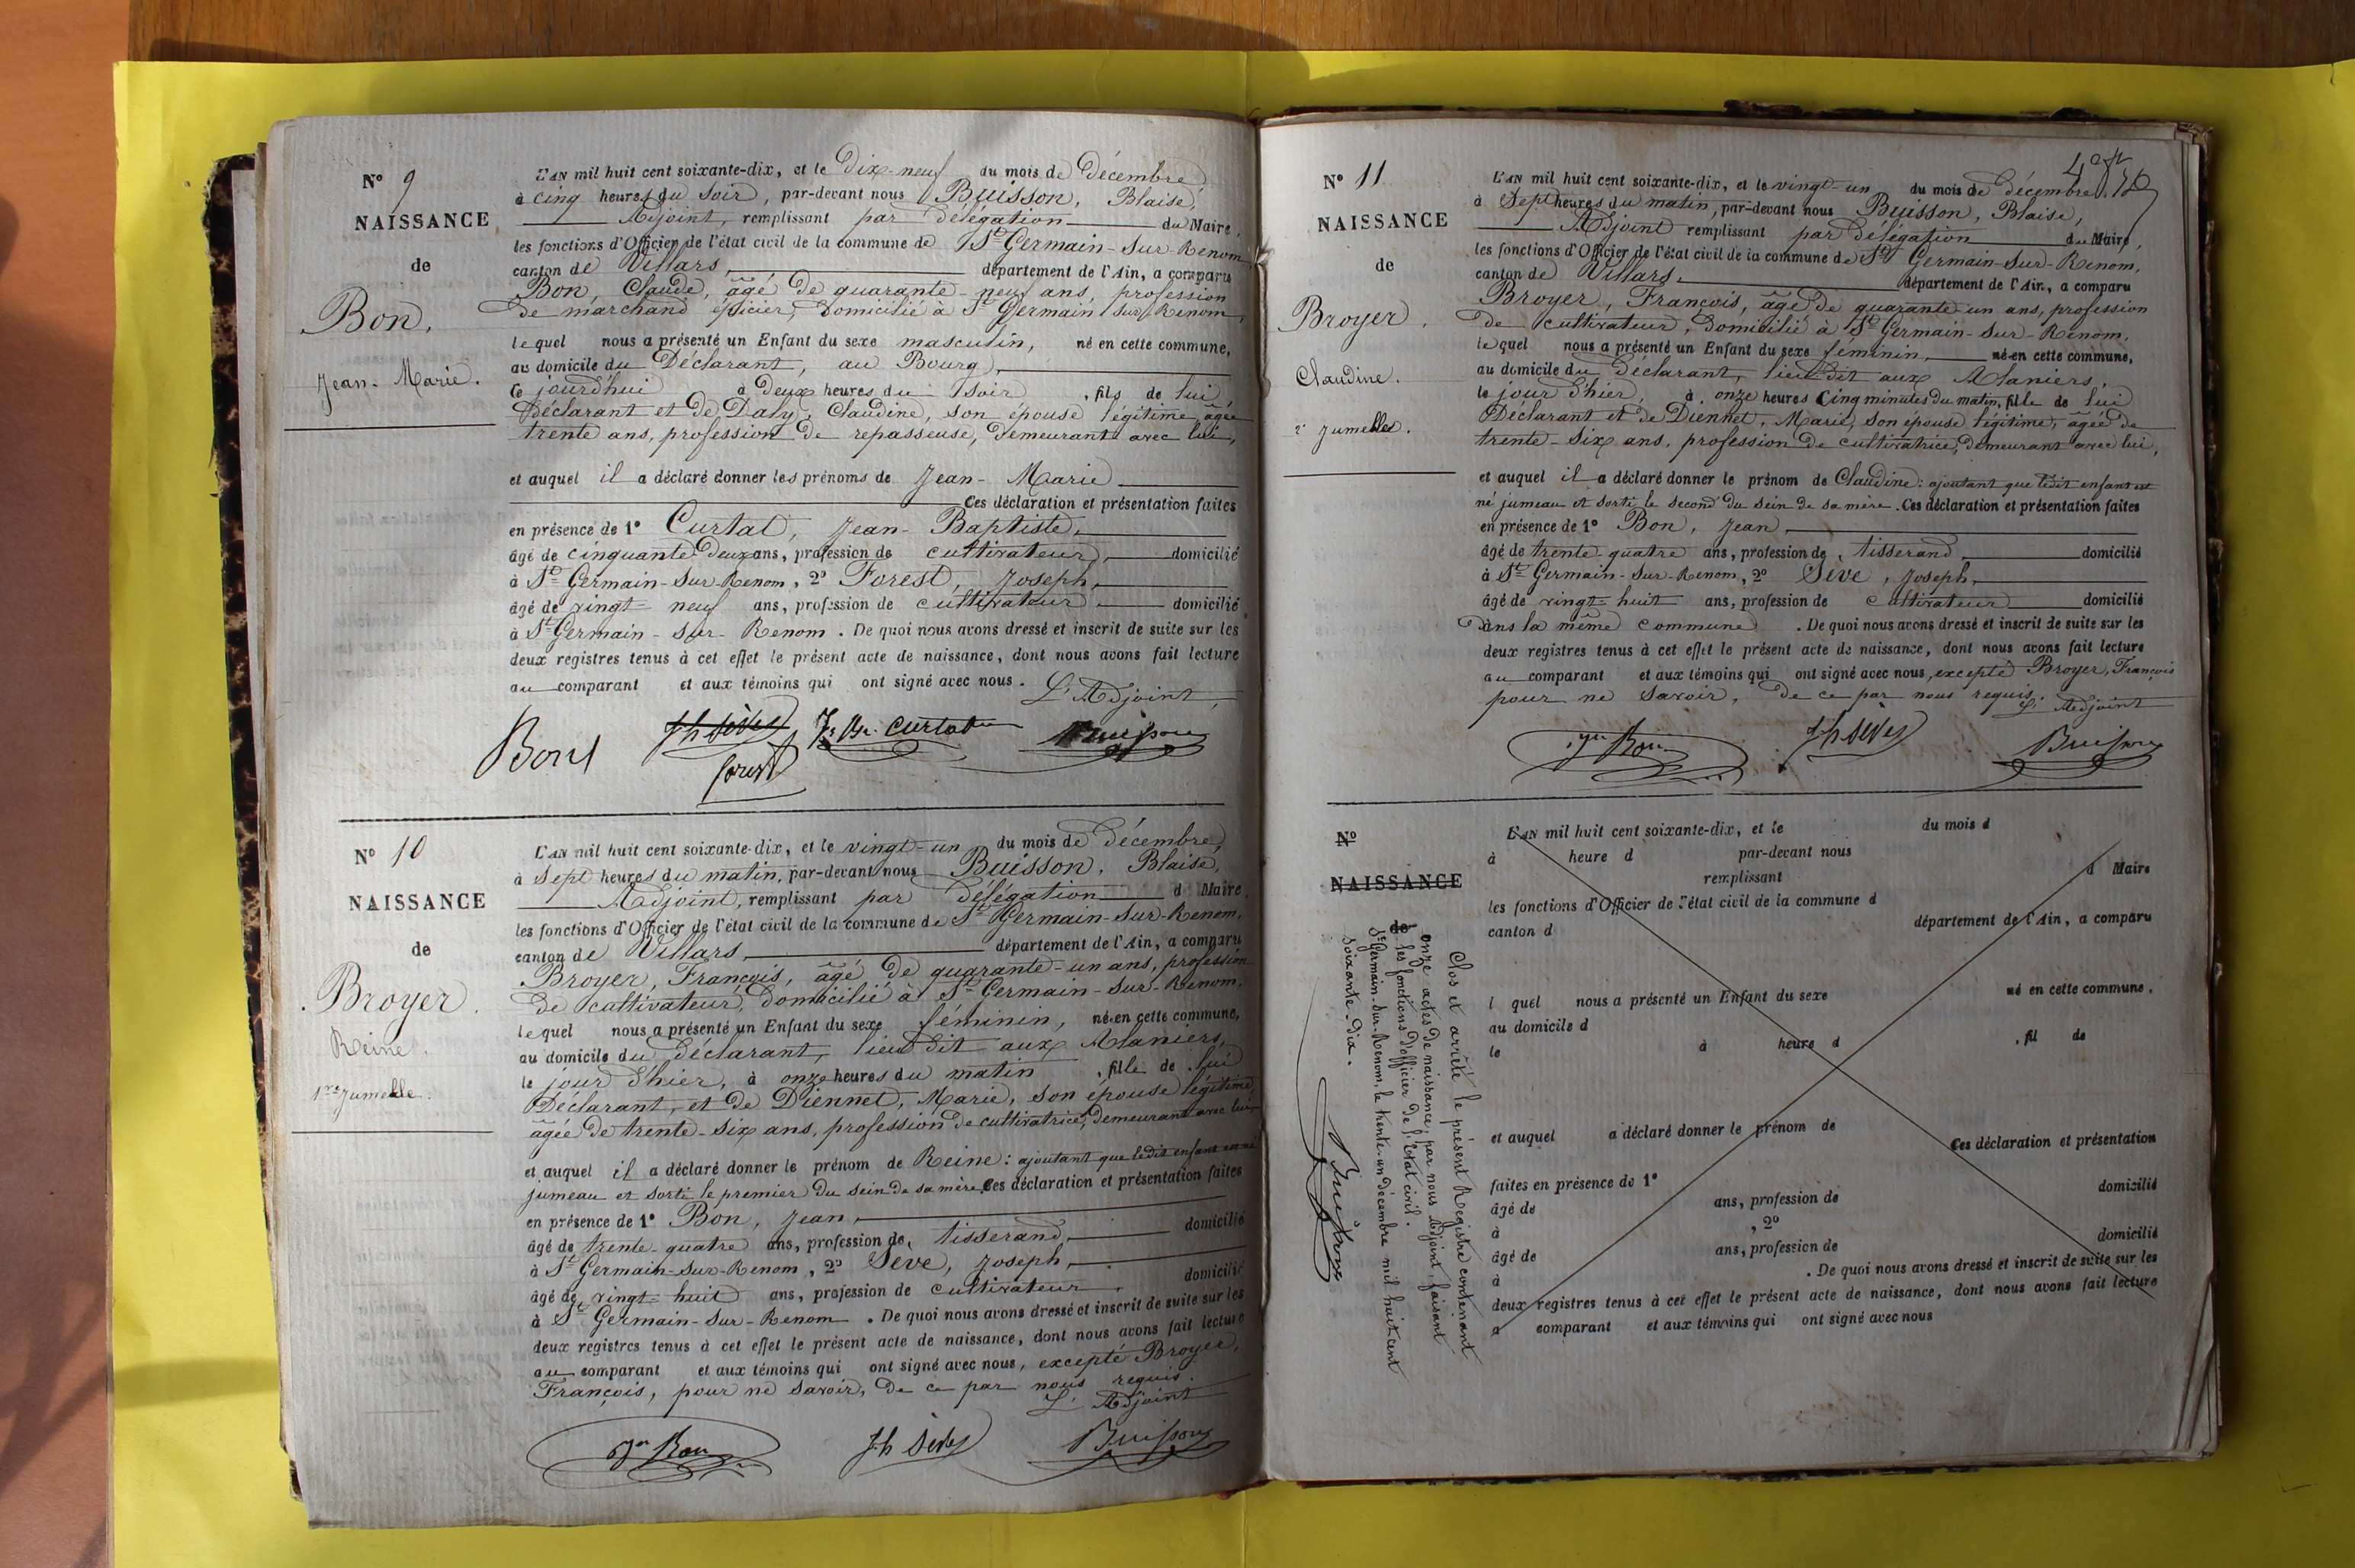 N° 9
NAISSANCE
de
Bon,
Jean-Marie.
L'AN mil huit cent soixante-dix, et le Dix-neuf du mois de Décembre,
à cinq heures du soir, par-devant nous Buisson, Blaise,
Adjoint, remplissant par délégation du Maire,
les fonctions d'Officier de l'état civil de la commune de St Germain-sur-Renom
canton de Villars, département de l'Ain, a comparu
Bon, Claude, âgé de quarante-neuf ans, profession
de marchand épicier, domicilié à St Germain sur Renom,
lequel nous a présenté un Enfant du sexe masculin, né en cette commune,
au domicile du Déclarant, au Bourg,
ce jourd'hui à deux heures du soir, fils de lui
Déclarant et de Daly, Claudine, son épouse légitime, âgée
trente ans, profession de repasseuse, demeurant avec lui,
et auquel il a déclaré donner les prénoms de Jean-Marie
Ces déclaration et présentation faites
en présence de 1° Curtat, Jean-Baptiste,
âgé de cinquante-deux ans, profession de cultivateur, domicilié
à St Germain-sur-Renom, 2° Forest, Joseph,
âgé de vingt-neuf ans, profession de cultivateur domicilié
à St Germain-sur-Renom. De quoi nous avons dressé et inscrit de suite sur les
deux registres tenus à cet effet le présent acte de naissance, dont nous avons fait lecture
au comparant et aux témoins qui ont signé avec nous. L'Adjoint,
Bon Jh Sève Jn Bte Curtat Buisson
forest
N° 10
NAISSANCE
de
Broyer.
Reine.
1re jumelle.
L'AN mil huit cent soixante-dix, et le vingt-un du mois de Décembre,
à sept heures du matin, par-devant nous Buisson, Blaise,
Adjoint, remplissant par délégation d Maire,
les fonctions d'Officier de l'état civil de la commune de St Germain-sur-Renom,
canton de Villars, département de l'Ain, a comparu
Broyer, François, âgé de quarante-un ans, profession
de cultivateur, domicilié à St Germain-sur-Renom,
lequel nous a présenté un Enfant du sexe féminin, né en cette commune,
au domicile du Déclarant, lieu dit aux Maniers,
le jour d'hier, à onze heures du matin, fille de lui
Déclarant, et de Diennet, Marie, son épouse légitime,
âgée de trente-six ans, profession de cultivatrice, demeurant avec lui
et auquel il a déclaré donner le prénom de Reine: ajoutant que ledit enfant est né
jumeau et sorti le premier du sein de sa mère. Ces déclaration et présentation faites
en présence de 1° Bon, Jean,
âgé de trente-quatre ans, profession de tisserand, domicilié
à St Germain-sur-Renom, 2° Seve, Joseph,
âgé de vingt-huit ans, profession de cultivateur domicilié
à St Germain-sur-Renom. De quoi nous avons dressé et inscrit de suite sur les
deux registres tenus à cet effet le présent acte de naissance, dont nous avons fait lecture
au comparant et aux témoins qui ont signé avec nous, excepté Broyer,
François, pour ne savoir, de ce par nous requis.
L'Adjoint
Jn Bon Jh Sève Buisson
N° 11
NAISSANCE
de
Broyer.
Claudine.
2e jumelle.
L'AN mil huit cent soixante-dix, et le vingt-un du mois de décembre,
à sept heures du matin, par-devant nous Buisson, Blaise,
Adjoint remplissant par délégation du Maire,
les fonctions d'Officier de l'état civil de la commune de St Germain-sur-Renom,
canton de Villars, département de l'Ain, a comparu
Broyer, François, âgé de quarante-un ans, profession
de cultivateur, domicilié à St Germain-sur-Renom,
lequel nous a présenté un Enfant du sexe féminin, né en cette commune,
au domicile du Déclarant, lieu dit aux Maniers,
le jour d'hier, à onze heures cinq minutes du matin, fille de lui
Déclarant et de Diennet, Marie, son épouse légitime, âgée de
trente-six ans, profession de cultivatrice, demeurant avec lui,
et auquel il a déclaré donner le prénom de Claudine: ajoutant que ledit enfant est
né jumeau et sorti le second du sein de sa mère. Ces déclaration et présentation faites
en présence de 1° Bon, Jean,
âgé de trente-quatre ans, profession de tisserand, domicilié
à St Germain-sur-Renom, 2° Sève, Joseph,
âgé de vingt-huit ans, profession de cultivateur domicilié
dans la même commune. De quoi nous avons dressé et inscrit de suite sur les
deux registres tenus à cet effet le présent acte de naissance, dont nous avons fait lecture
au comparant et aux témoins qui ont signé avec nous, excepté Broyer, François
pour ne savoir, de ce par nous requis.
L'Adjoint
Jn Bon Jh Sève Buisson
N°
NAISSANCE
de
L'AN mil huit cent soixante-dix, et le du mois d
à heure d par-devant nous
remplissant d Maire
les fonctions d'Officier de l'état civil de la commune d
canton d département de l'Ain, a comparu
l quel nous a présenté un Enfant du sexe né en cette commune,
au domicile d
le à heure d , fil de
et auquel a déclaré donner le prénom de
Ces déclaration et présentation
faites en présence de 1°
âgé de ans, profession de domicilié
à , 2°
âgé de ans, profession de domicilié
à . De quoi nous avons dressé et inscrit de suite sur les
deux registres tenus à cet effet le présent acte de naissance, dont nous avons fait lecture
a comparant et aux témoins qui ont signé avec nous
Clos et arrêté le présent Registre contenant
onze actes de naissance, par nous Adjoint, faisant
les fonctions d'officier de l'Etat civil.
St Germain-sur-Renom, le trente-un décembre mil huit cent
soixante-dix.
Buisson